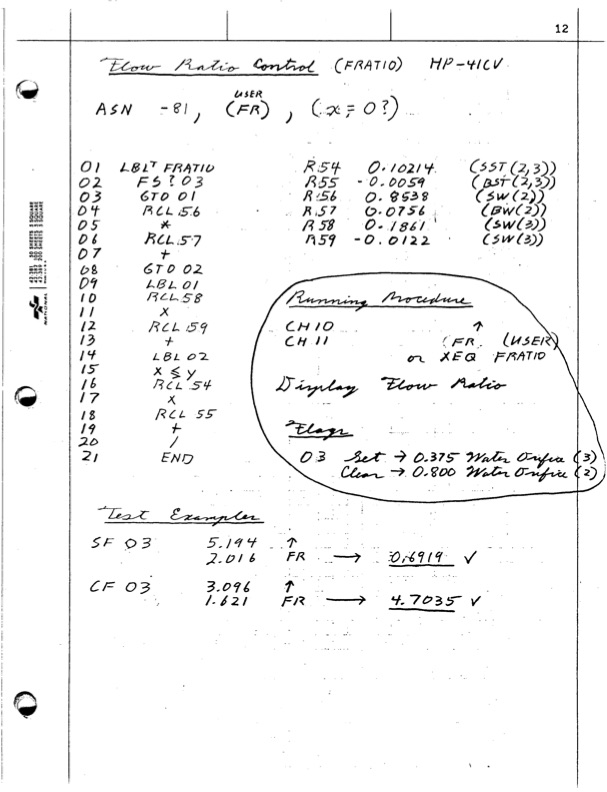 12
Flow Ratio Control (FRATIO) HP-41CV
USER
ASN -81, (FR), (x=0?)
01 LBLT FRATIO R54 0.10214 (SST(2,3))
02 FS? 03 R55 -0.0059 (BST(2,3))
03 GTO 01 R56 0.8538 (SW(2))
04 RCL 56 R57 0.0756 (BW(2))
05 * R58 0.1861 (SW(3))
06 RCL 57 R59 -0.0122 (SW(3))
07 +
08 GTO 02
09 LBL 01
10 RCL 58 Running Procedure
11 x
12 RCL 59 CH10 ↑
13 + CH 11 (FR (USER)
14 LBL 02 or XEQ FRATIO
15 x ≤ y
16 RCL 54 Display Flow Ratio
17 x
18 RCL 55
19 + Flags
20 /
21 END 03 Set → 0.375 Water Orifice (3)
Clear → 0.800 Water Orifice (2)
Test Examples
SF 03 5.194 ↑
2.016 FR → 0.6919 √
CF 03 3.096 ↑
1.621 FR → 4.7035 √
NATIONAL